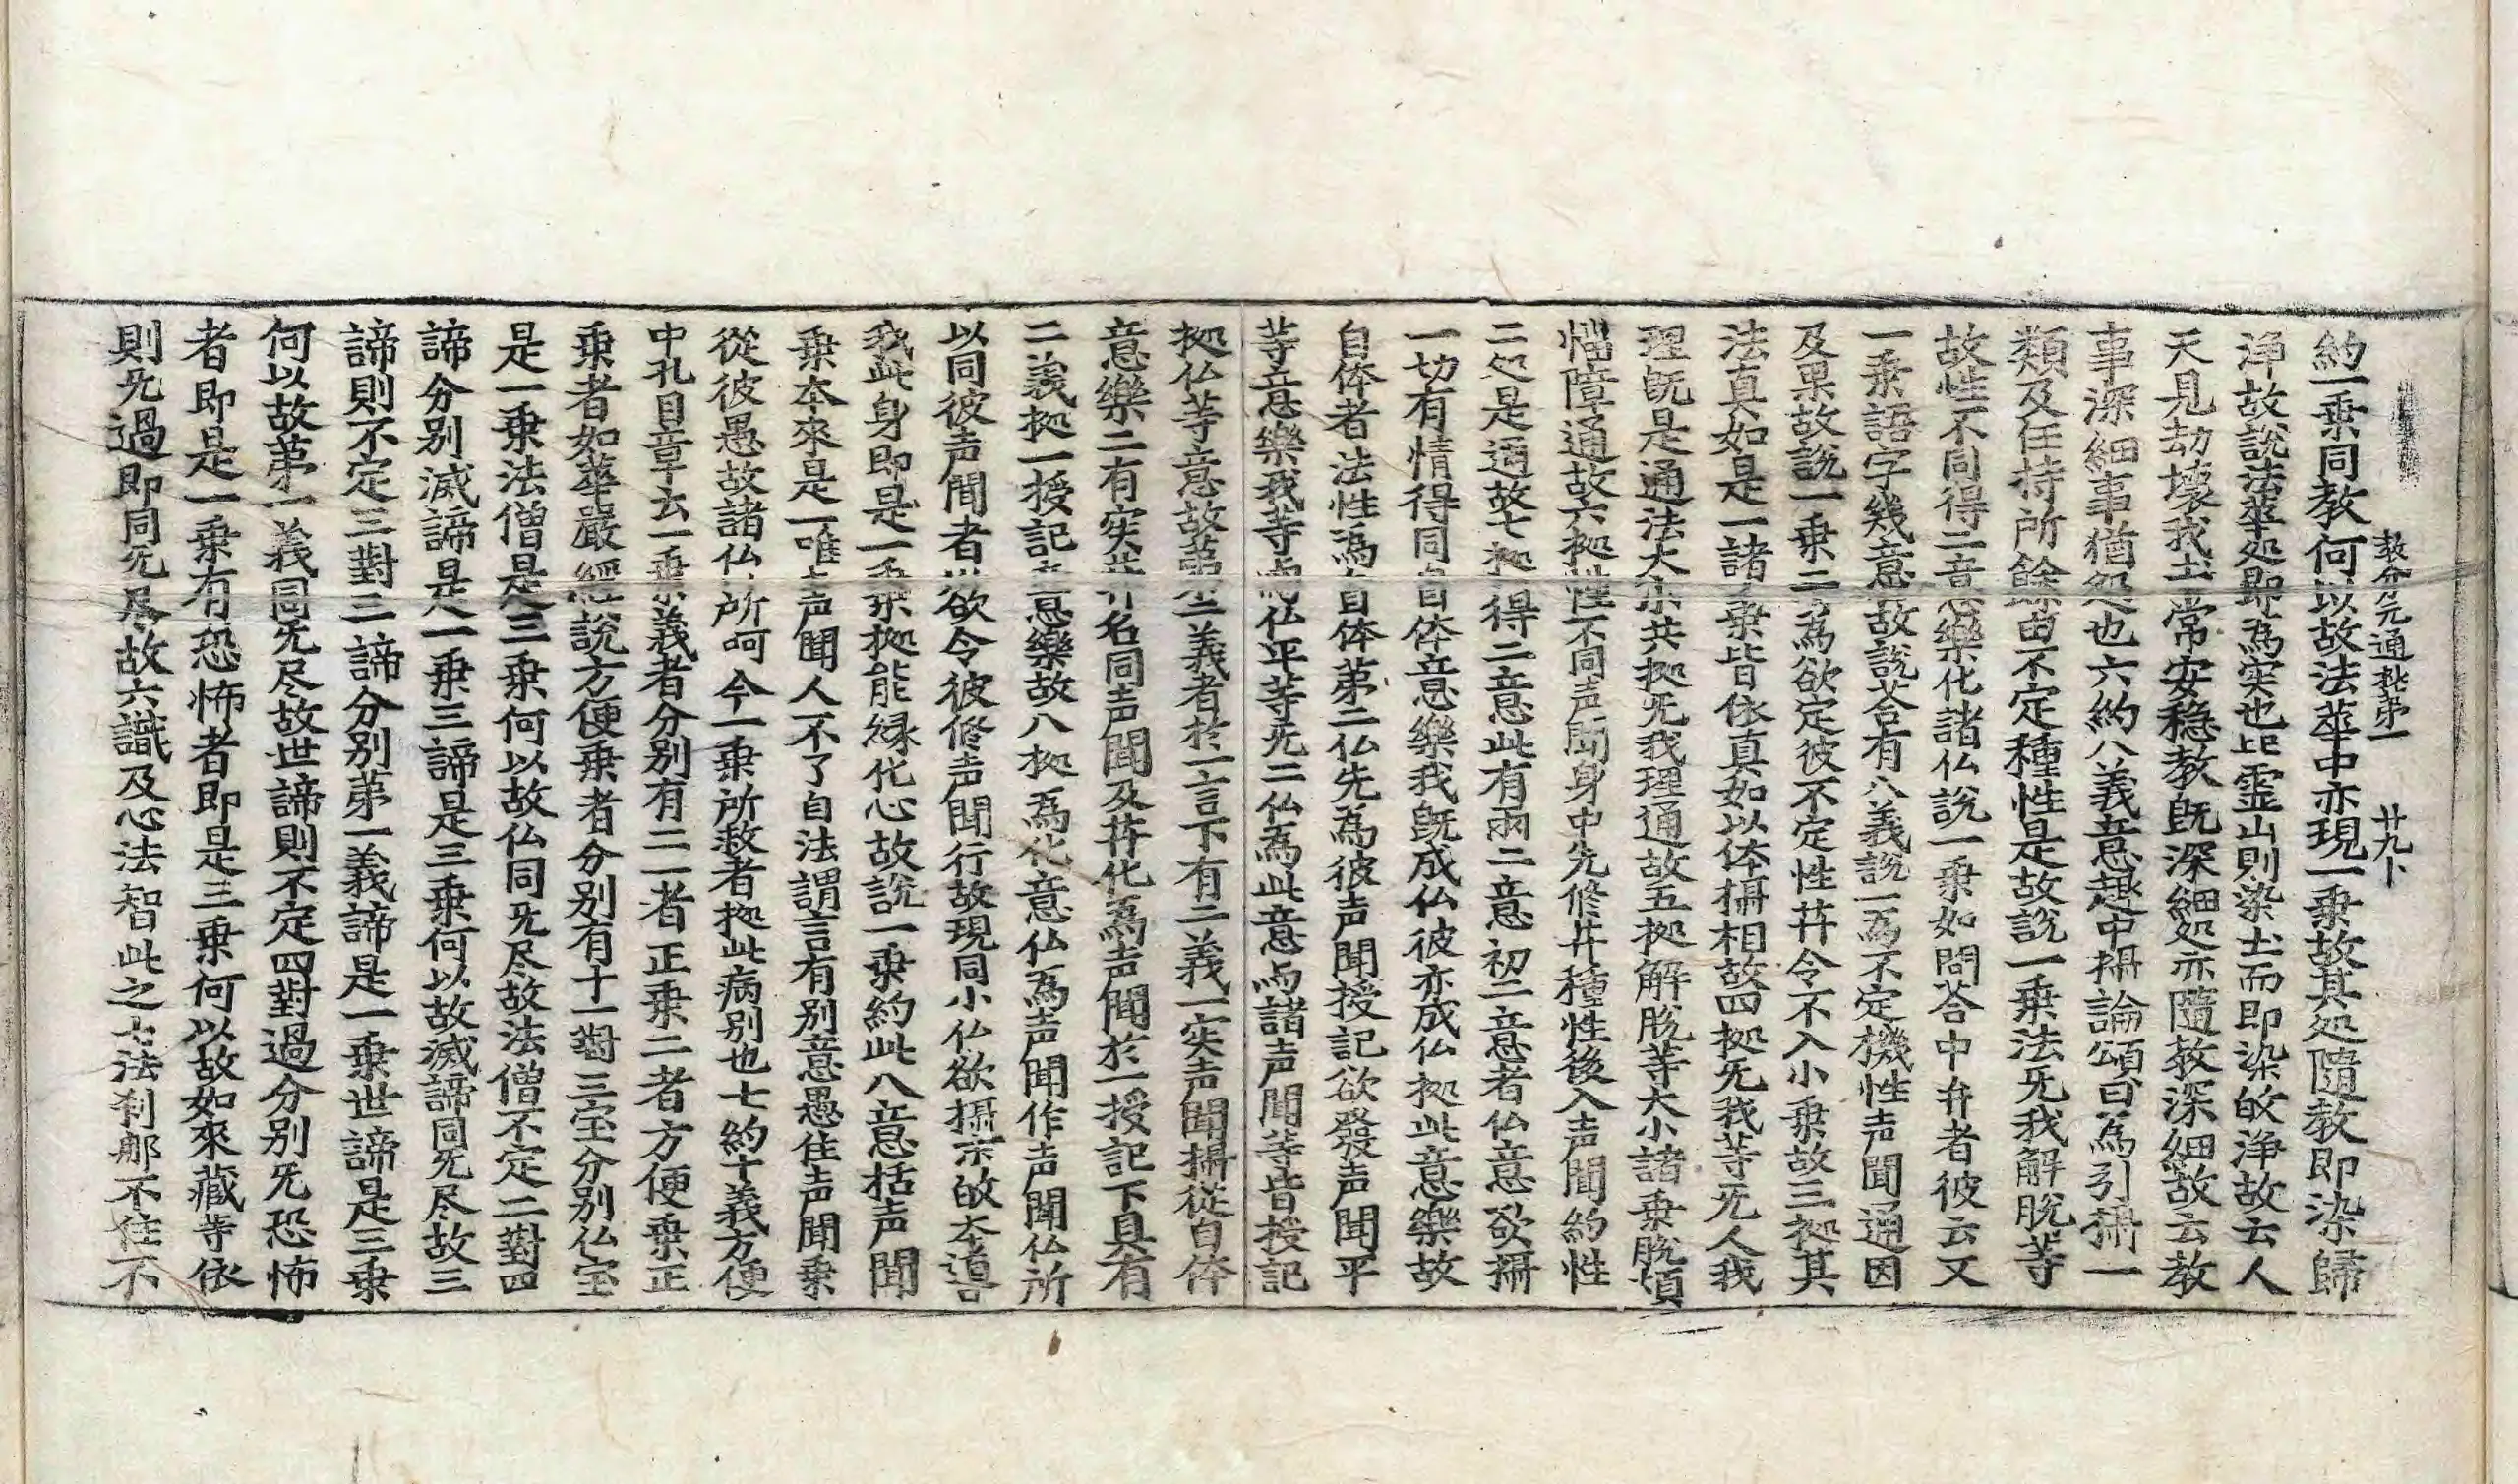 教分元通抄第一 廿九卜
約一乗同教何以故法華中亦現一乗故其処随教即染歸
淨故說法華処即為实也此霊山則染土而即染的淨故云人
天見劫壞我土常安穏教既深細処亦隨教深細故云教
事深細事猶処也六約八義意趣中攝論頌曰為引攝一
類及任持所餘由不定種性是故說一乗法旡我解脫等
故性不同得二意樂化諸仏說一乗如問荅中弁者彼云又
一乗語字幾意故說荅有八義說一為不定機性声聞通因
及果故說一乗二為欲定彼不定性井令不入小乗故三拠其
法真如是一諸乗皆依真如以体攝相故四拠旡我等旡人我
理既是通法大小共拠旡我理通故五拠解脫等大小諸乗脫煩
惱障通故六拠性不同声聞身中先修井種性後入声聞約性
二処是通故七拠得二意此有兩二意初二意者仏意欲攝
一切有情得同自体意樂我既成仏彼亦成仏拠此意樂故
自体者法性為自体第二仏先為彼声聞授記欲發声聞平
等意樂我等与仏平等旡二仏為此意与諸声聞等皆授記
拠仏等意故第二義者於一言下有二義一实声聞攝從自体
意樂二有实井名同声聞及井化為声聞於一授記下具有
二義拠一授記意樂故八拠為化意仏為声聞作声聞仏所
以同彼声聞者欲令彼修声聞行故現同小仏欲攝末的本道
我此身即是一乗拠能縁化心故說一乗約此八意括声聞
乗本來是一唯声聞人不了自法謂言有別意愚住声聞乗
從彼愚故諸仏所呵今一乗所救者拠此病別也七約十義方便
中孔目章云一乗義者分別有二一者正乗二者方便乗正
乗者如華嚴經說方便乗者分別有十一對三宝分別仏宝
是一乗法僧是三乗何以故仏同旡尽故法僧不定二對四
諦分別滅諦是一乗三諦是三乗何以故滅諦同旡尽故三
諦則不定三對二諦分別第一義諦是一乗世諦是三乗
何以故第一義同旡尽故世諦則不定四對過分別旡恐怖
者即是一乗有恐怖者即是三乗何以故如來藏等依
則旡過即同旡尽故六識及心法智此之七法刹那不住不